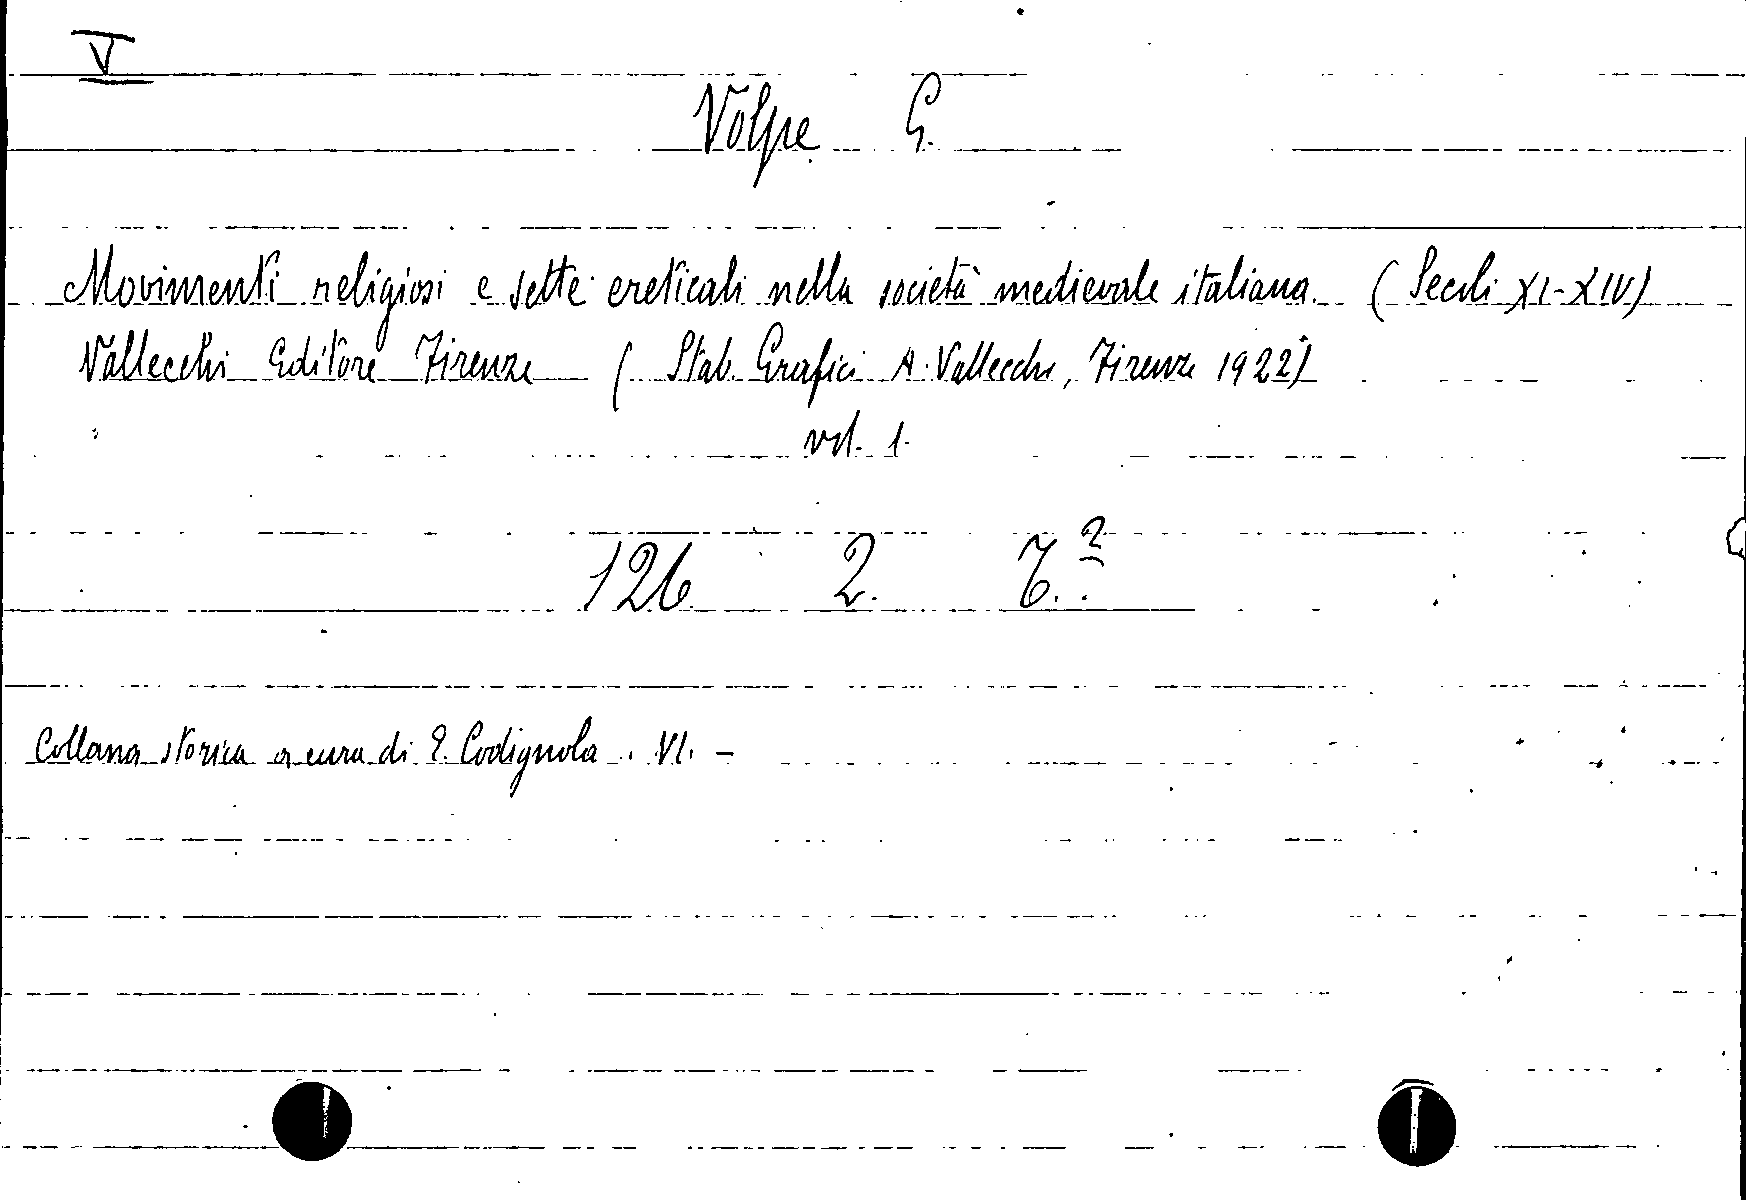 V
Volpe G.
Movimenti religiosi e sette ereticali nella società medievale italiana. (Secoli XI-XIV)
Vallecchi Editore Firenze (Stab. Grafici A. Vallecchi, Firenze 1922)
vol. 1.
126. 2. 7.²
Collana storica a cura di E. Codignola. VI. -